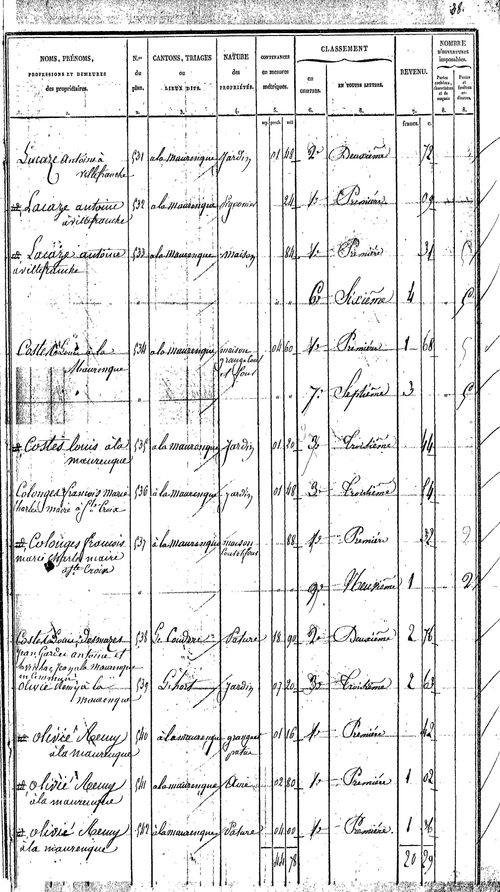 38.
NOMS, PRÉNOMS, PROFESSIONS ET DEMEURES des propriétaires. N.os du plan. CANTONS, TRIAGES ou LIEUX DITS. NATURE des PROPRIÉTÉS. CONTENANCES en mesures métriques. CLASSEMENT en CHIFFRES. EN TOUTES LETTRES. REVENU. NOMBRE D'OUVERTURES imposables.
1. 2. 3. 4. 5. 6. 7. 8.
francs. c.
Lacaze antoine à villefranche 531 à la maurenque Jardin 01 48 2e Deuxième 72
Lacaze antoine à villefranche 532 à la maurenque 24 1e Première 09
Lacaze antoine à villefranche 533 à la maurenque maison 84 1e Première 31
" " " 6e Sixième 4
Costes Louis à la Maurenque 534 à la maurenque maison grange sol et four 04 60 1e Première 1 68
" " 7e Septième 3
Costes Louis à la maurenque 535 à la maurenque Jardin 01 20 3e troisième 44
Colonges françois marie Charles maire à Ste Croix 536 à la maurenque jardin 01 48 3e troisième 54
Colonges françois marie Charles maire à Ste Croix 537 à la maurenque maison 88 1e Première 32 2
" 9e Neuvième 1 2
Costes Louis, Desmazes Jean Gardée antoine et en Commun 538 Le Couderc Pature 18 90 2e Deuxième 2 76
olivié Remy à la maurenque 539 L'hort Jardin 07 20 3e troisième 2 63
olivié Remy à la maurenque 540 à la maurenque grange patus 01 16 1e Première 42
olivié Remy à la maurenque 541 à la maurenque 02 80 1e Première 1 02
olivié Remy à la maurenque 542 à la maurenque Pature 04 00 1e Première. 1 36
44 78 20 29